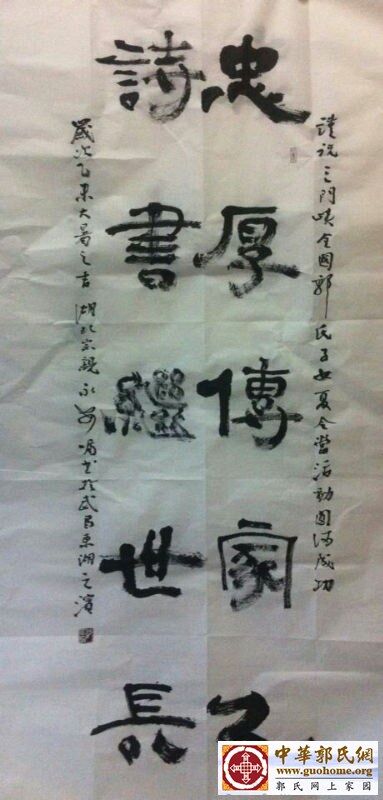 謹祝三門峡全國郭氏子女夏令营活動圓滿成功
忠厚傳家久
詩書繼世長
歲次乙未大暑之吉 湖北宗親永 嘱书於武昌東湖之濱
中華郭氏網
www.guohome.org
郭氏网上家园